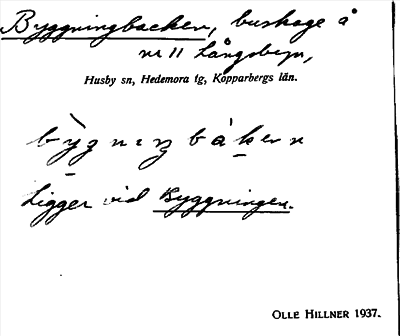 Byggningbacken, bushage å
nr 11 Långsbyn,
Husby sn, Hedemora tg, Kopparbergs län.
bỳ̱gnıŋbàḵern
Ligger vid Byggningen.
OLLE HILLNER 1937.